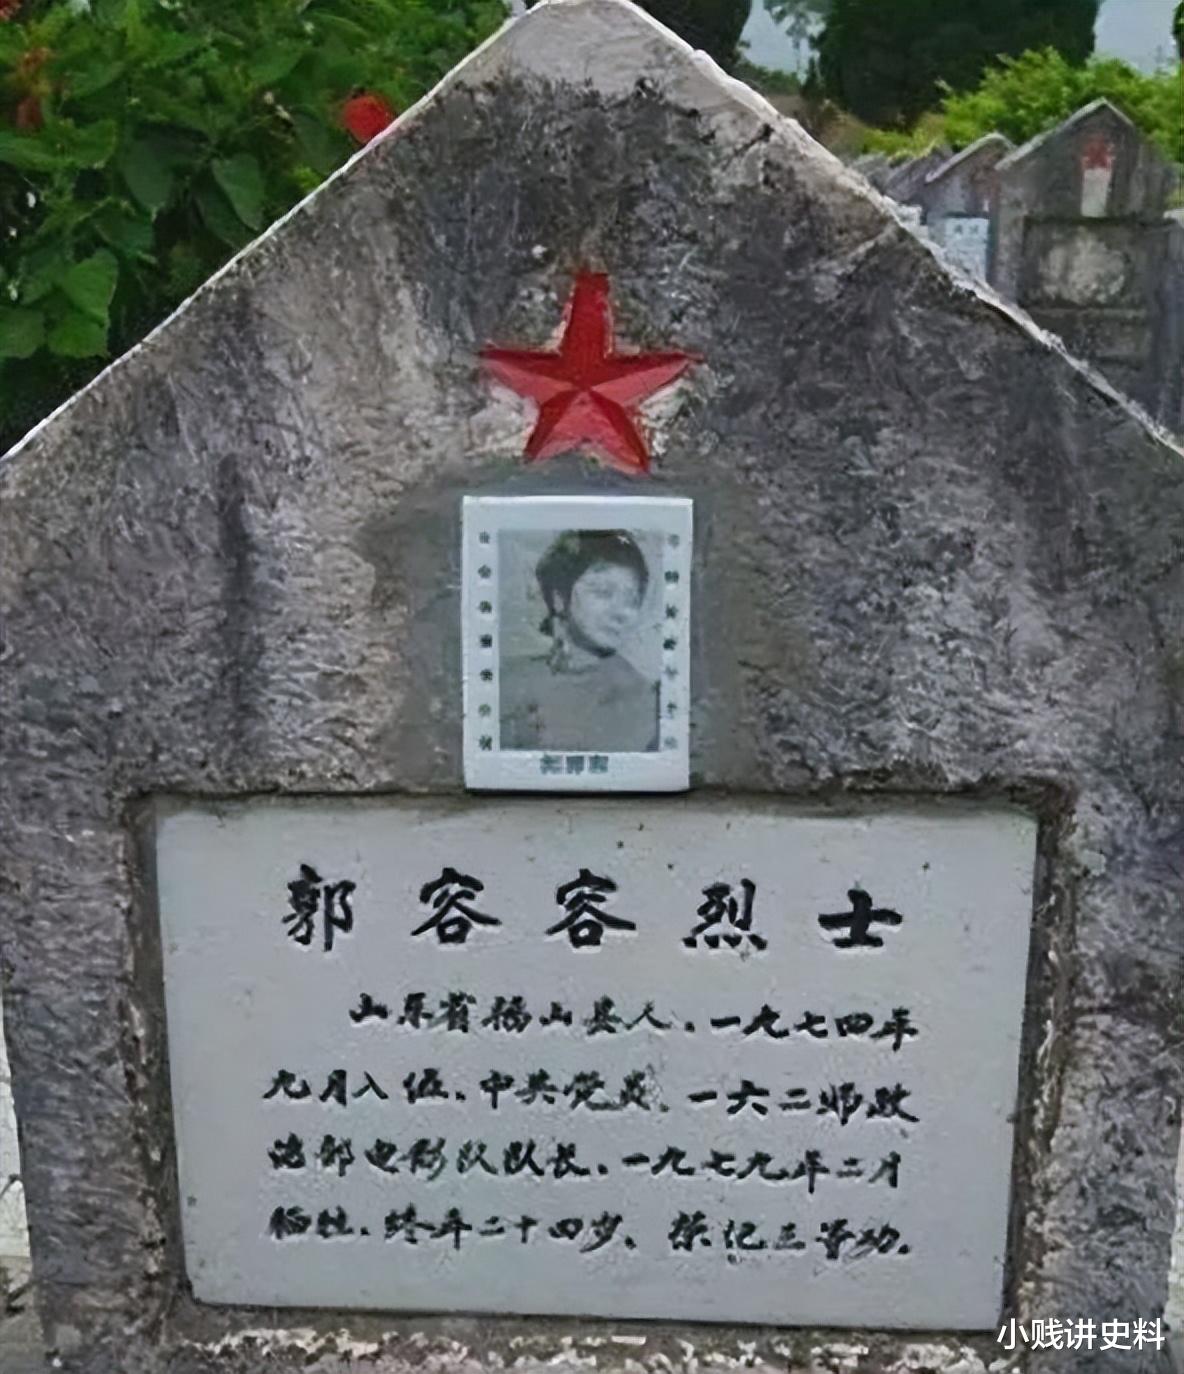 郭容容烈士
山东省福山县人.一九七四年
九月入伍.中共党员.一六二师政
治部电影队队长.一九七九年二月
牺牲.终年二十四岁.荣记三等功.
小贱讲史料